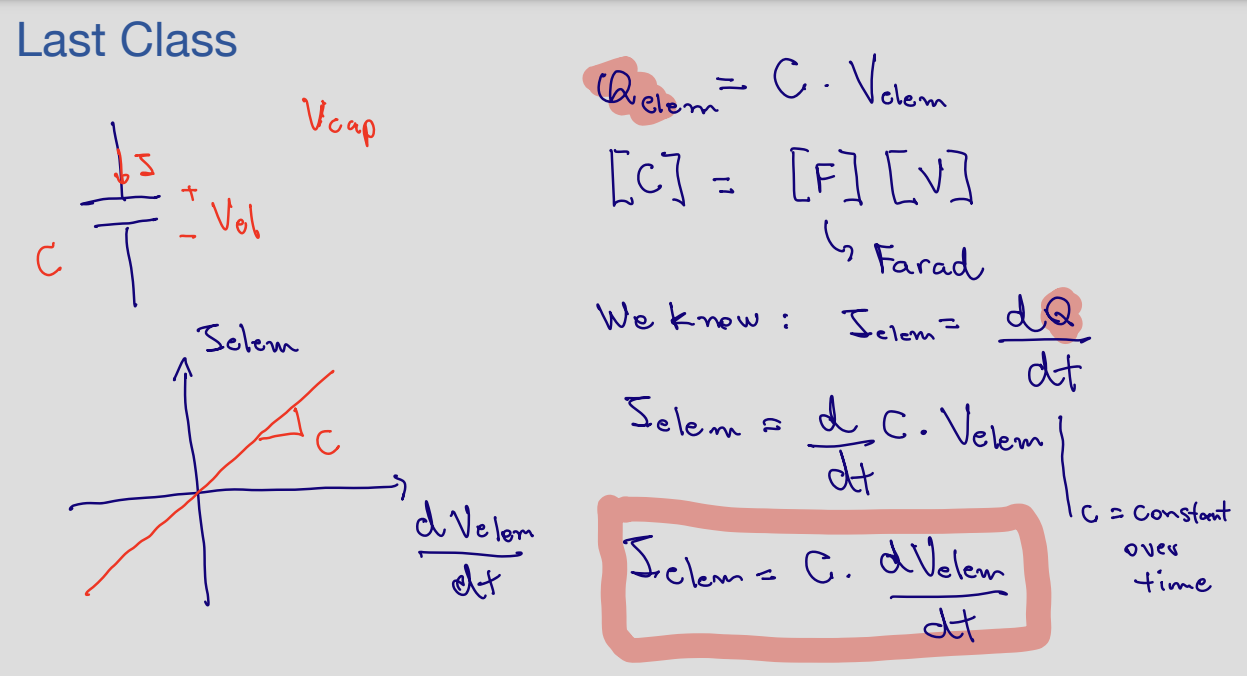 Last Class
Vcap
I
+
Vel
−
C
Ielem
C
dVelem
dt
Qelem = C · Velem
[C] = [F] [V]
↳ Farad
We know : Ielem = dQ
dt
Ielem = d C · Velem
dt
C = constant
over
time
Ielem = C · dVelem
dt